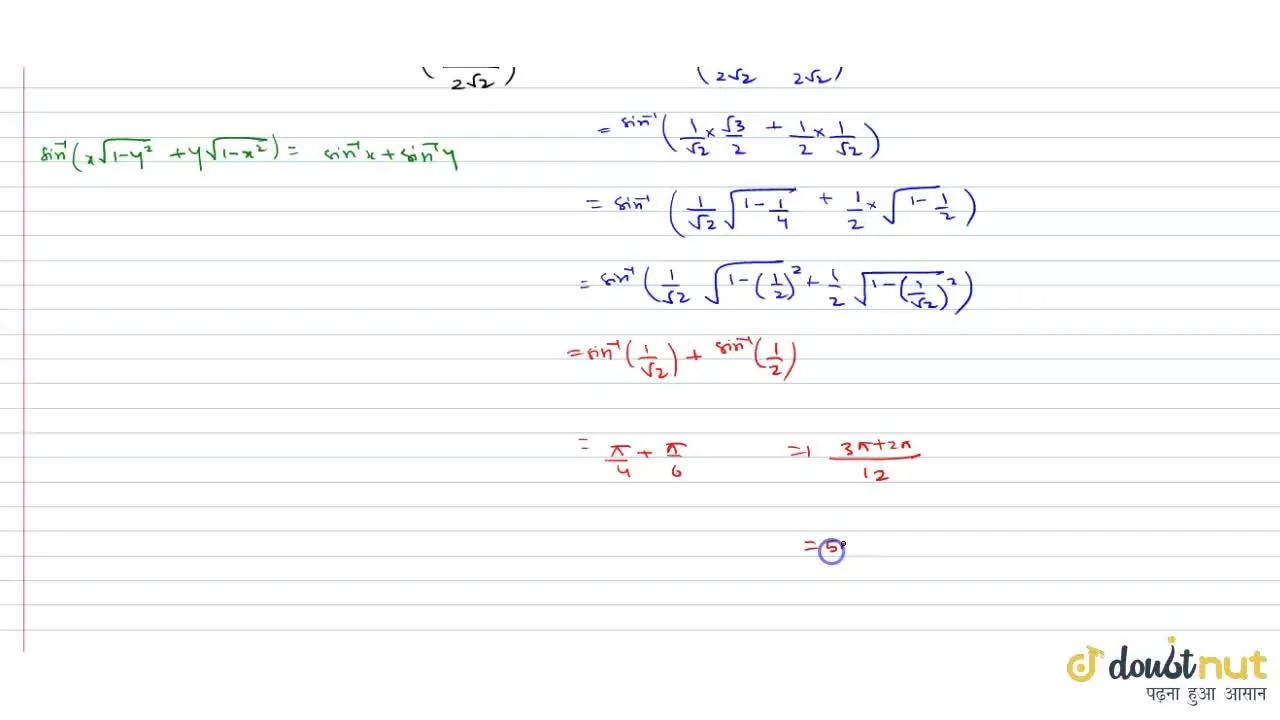 ( 2√2 ) ( 2√2 2√2 )
= sin⁻¹ ( 1/√2 × √3/2 + 1/2 × 1/√2 )
sin⁻¹ ( x√(1-y²) + y√(1-x²) ) = sin⁻¹x + sin⁻¹y
= sin⁻¹ ( 1/√2 √(1 - 1/4) + 1/2 × √(1 - 1/2) )
= sin⁻¹ ( 1/√2 √(1-(1/2)²) + 1/2 √(1-(1/√2)²) )
= sin⁻¹ ( 1/√2 ) + sin⁻¹ ( 1/2 )
= π/4 + π/6 =1 3π+2π/12
= 5
doubtnut
पढ़ना हुआ आसान